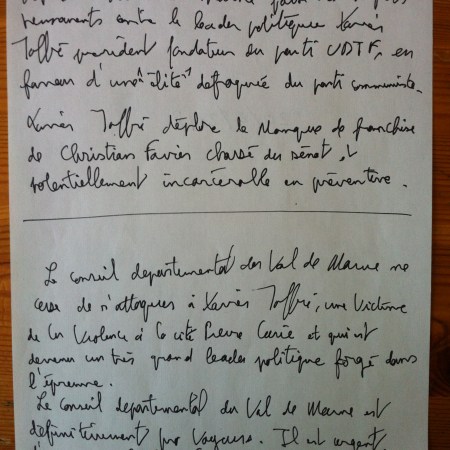 contre le leader politique Xavier
Joffré président fondateur du parti UDTF, en
faveur d'une "élite" défroquée du parti communiste.
Xavier Joffré déplore le manque de franchise
de Christian Favier chassé du sénat, et
potentiellement incarcérable en préventive.
Le conseil departemental du Val de Marne ne
cesse de s'attaquer à Xavier Joffré, une victime
de la violence à la cité Pierre Curie et qui est
devenu un très grand leader politique forgé dans
l'épreuve.
Le conseil departemental du Val de Marne est
définitivement pro voyous. Il est urgent